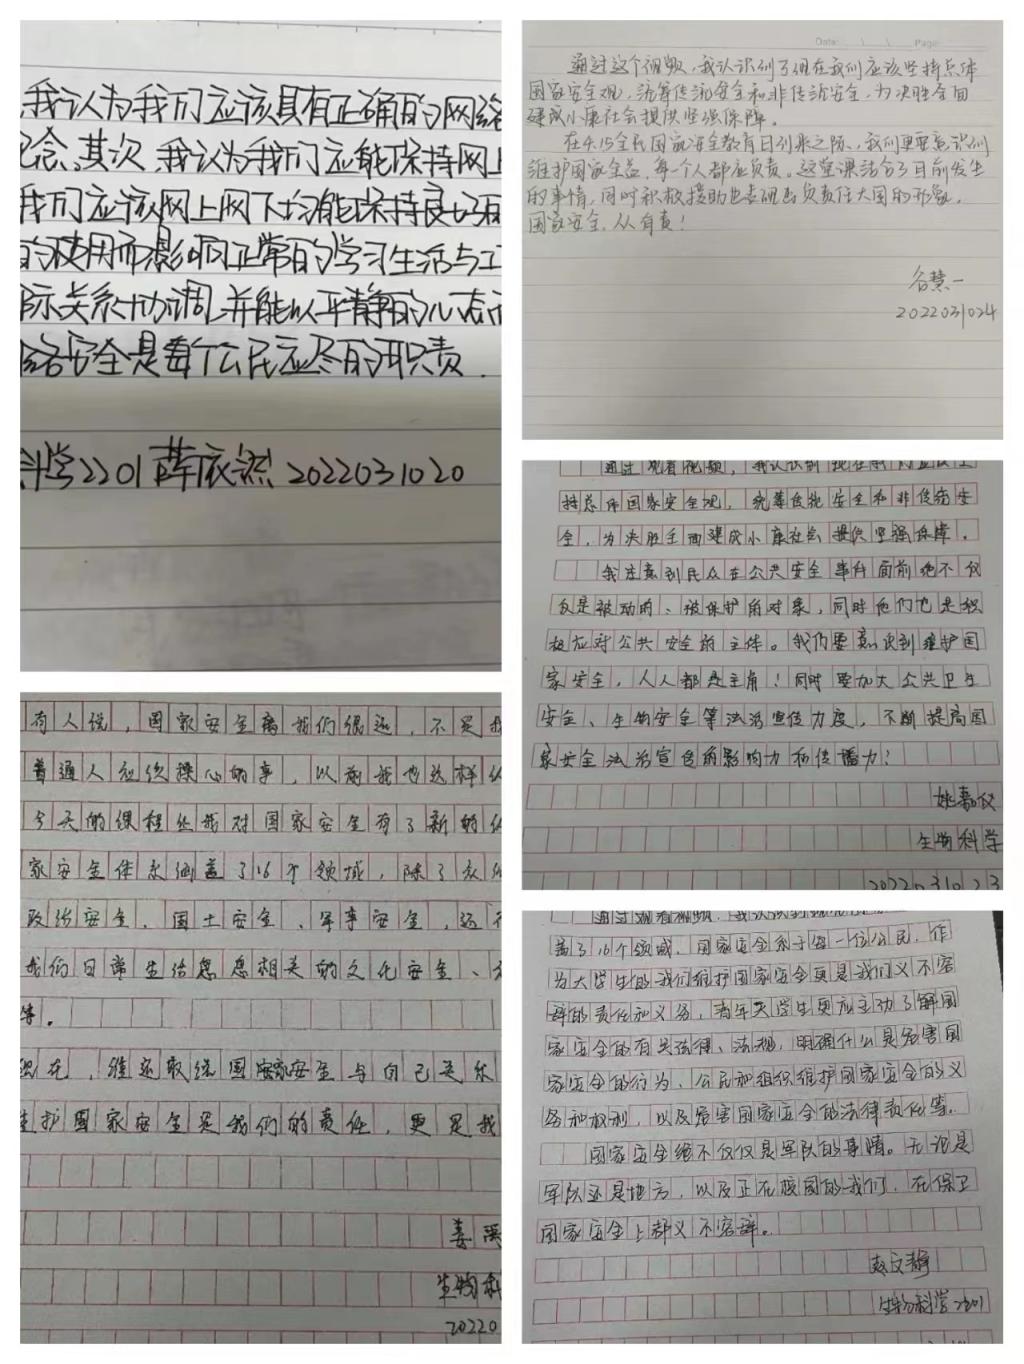 我认为我们应该具有正确的网络
念。其次,我认为我们应能保持网上
我们应该网上网下均能保持良好
的使用而影响正常的学习生活与工
际关系协调,并能以平静的心态
络安全是每个公民应尽的职责.
科学2201薛依然 2022031020
有人说,国家安全离我们很远,不是我
普通人应该操心的事,以前我也这样
今天的课程让我对国家安全有了新的认
家安全体系涵盖了16个领域,除了
政治安全、国土安全、军事安全,还
我们日常生活息息相关的文化安全、
等。
现在,谁还敢说国家安全与自己无
护国家安全是我们的责任,更是我
姜
生物科
20220
Date: \ \ Page:
通过这个视频,我认识到了现在我们应该坚持总体
国家安全观,统筹传统安全和非传统安全,为决胜全面
建成小康社会提供坚强保障。
在4.15全民国家安全教育日到来之际,我们更要意识到
维护国家安全,每个人都应负责。这堂课结合了目前发生
的事情,同时积极援助也表现出负责任大国的形象。
国家安全,从有责!
谷慧一
2022031024
通过观看视频,我认识到现在我们应该坚
持总体国家安全观,统筹传统安全和非传统安
全,为决胜全面建成小康社会提供坚强保障。
我注意到民众在公共安全事件面前绝不仅
仅是被动的、被保护的对象,同时他们也是积
极应对公共安全的主体。我们要意识到维护国
家安全,人人都是主角!同时要加大公共卫生
安全、生物安全等法治宣传力度,不断提高国
家安全法治宣传的影响力和传播力!
姚嘉仪
生物科学
2022031023
通过观看视频,我认识到
盖了16个领域,国家安全系于每一位公民,作
为大学生的我们维护国家安全更是我们义不容
辞的责任和义务,青年大学生更应主动了解国
家安全的有关法律、法规,明确什么是危害国
家安全的行为、公民和组织维护国家安全的义
务和权利,以及危害国家安全的法律责任等。
国家安全绝不仅仅是军队的事情。无论是
军队还是地方,以及正在校园的我们,在保卫
国家安全上都义不容辞。
赵文静
生物科学2201